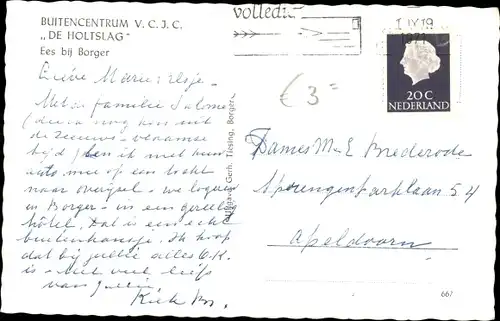 BUITENCENTRUM V. C. J. C.
„DE HOLTSLAG"
Ees bij Borger
volledi
1 IV 19
1971
€ 3=
20 C
NEDERLAND
Lieve Marie
Met de familie Salome
(die ik nog ken uit
de Zeeuws-Vlaamse
tijd) ben ik met hun
auto mee op een tocht
naar Overijsel - we logeren
in Borger - in een gezellig
hôtel. Dat is een echt
buitenhuisje. Ik hoop
dat bij jullie alles O.K.
is - met veel liefs
van jullie
Uitgave: Gerh. Tiesing, Borger
Dames M-E Brederode
Sprengenparklaan 54
Apeldoorn
667